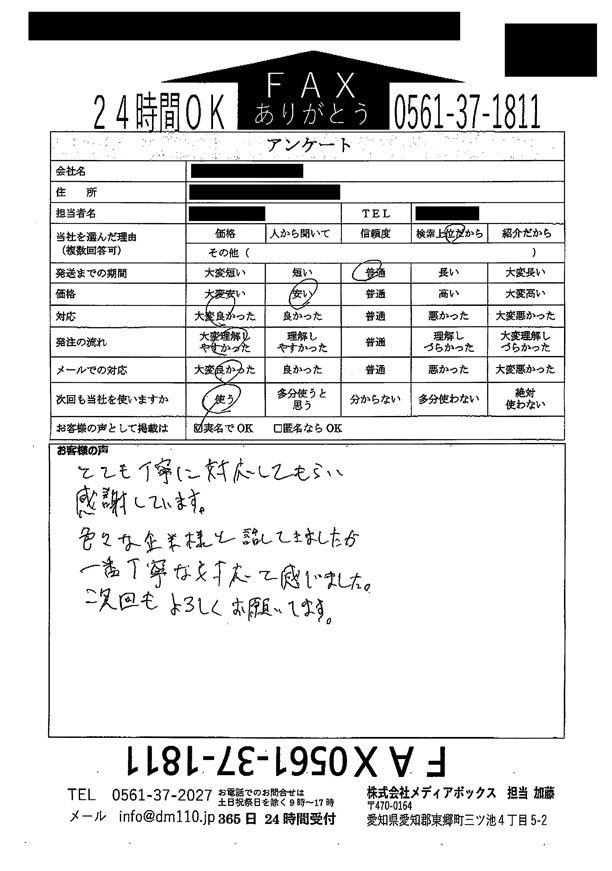 FAX
ありがとう
24時間OK 0561-37-1811
アンケート
会社名
住　所
担当者名 TEL
当社を選んだ理由
（複数回答可）
価格 人から聞いて 信頼度 検索上位だから 紹介だから
その他（ ）
発送までの期間 大変短い 短い 普通 長い 大変長い
価格 大変安い 安い 普通 高い 大変高い
対応 大変良かった 良かった 普通 悪かった 大変悪かった
発注の流れ 大変理解しやすかった 理解しやすかった 普通 理解しづらかった 大変理解しづらかった
メールでの対応 大変良かった 良かった 普通 悪かった 大変悪かった
次回も当社を使いますか 使う 多分使うと思う 分からない 多分使わない 絶対使わない
お客様の声として掲載は ☑実名でOK □匿名ならOK
お客様の声
とても丁寧に対応してもらい
感謝しています。
色々な企業様と話してきましたが
一番丁寧な対応で感じました。
次回もよろしくお願いします。
FAX0561-37-1811
TEL 0561-37-2027 お電話でのお問合せは
土日祝祭日を除く9時～17時
メール info@dm110.jp 365日 24時間受付
株式会社メディアボックス 担当 加藤
〒470-0164
愛知県愛知郡東郷町三ツ池4丁目5-2